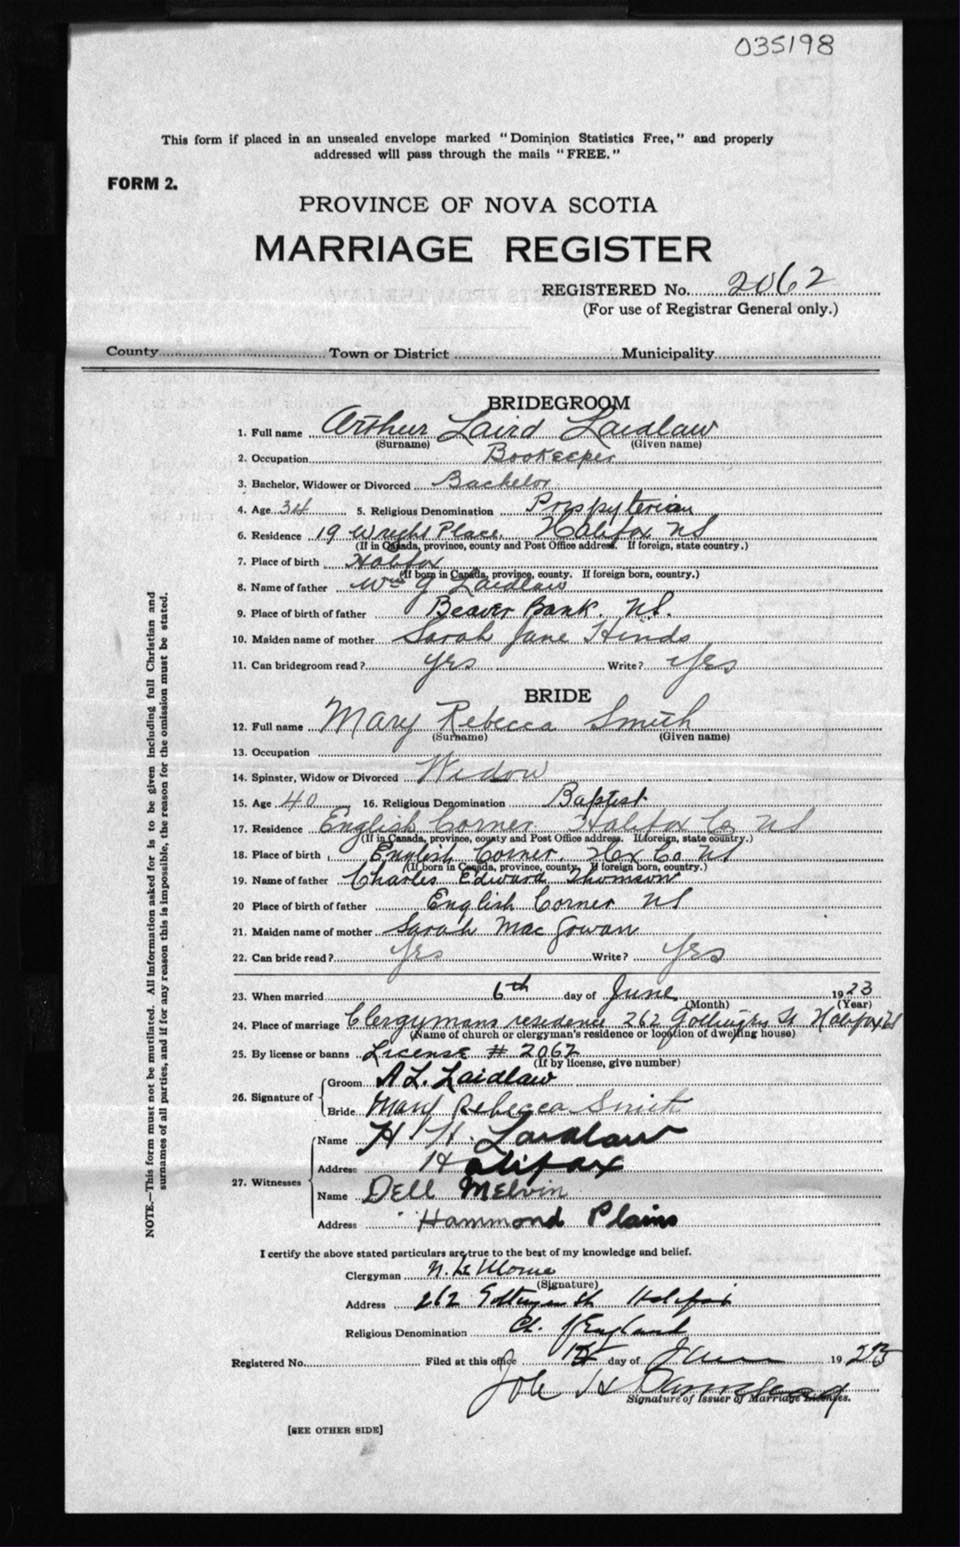 035198
This form if placed in an unsealed envelope marked "Dominion Statistics Free," and properly
addressed will pass through the mails "FREE."
FORM 2.
PROVINCE OF NOVA SCOTIA
MARRIAGE REGISTER
REGISTERED No. 2062
(For use of Registrar General only.)
County Town or District Municipality
BRIDEGROOM
1. Full name Arthur Laird Laidlaw
(Surname) (Given name)
2. Occupation Bookeeper
3. Bachelor, Widower or Divorced Bachelor
4. Age 34 5. Religious Denomination Presbyterian
6. Residence 19 Wright Place. Halifax NS
(If in Canada, province, county and Post Office address. If foreign, state country.)
7. Place of birth Halifax
(If born in Canada, province, county. If foreign born, country.)
8. Name of father Wm J Laidlaw
9. Place of birth of father Beaver Bank. N.S.
10. Maiden name of mother Sarah Jane Hinds
11. Can bridegroom read? yes Write? yes
BRIDE
12. Full name Mary Rebecca Smith
(Surname) (Given name)
13. Occupation
14. Spinster, Widow or Divorced Widow
15. Age 40 16. Religious Denomination Baptist
17. Residence English Corner Halifax Co NS
(If in Canada, province, county and Post Office address. If foreign, state country.)
18. Place of birth English Corner. Hx Co NS
(If born in Canada, province, county. If foreign born, country.)
19. Name of father Charles Edward Thomson
20 Place of birth of father English Corner NS
21. Maiden name of mother Sarah Mac Gowan
22. Can bride read? yes Write? yes
23. When married 6th day of June 1923
(Month) (Year)
24. Place of marriage Clergymans residence 262 Gottingen St Halifax NS
(Name of church or clergyman's residence or location of dwelling house)
25. By license or banns License # 2062
(If by license, give number)
26. Signature of
Groom A. L. Laidlaw
Bride Mary Rebecca Smith
27. Witnesses
Name H H. Laidlaw
Address Halifax
Name Dell Melvin
Address Hammond Plains
I certify the above stated particulars are true to the best of my knowledge and belief.
Clergyman N.
(Signature)
Address 262 Gottingen St Halifax
Religious Denomination Ch. of England
Registered No. Filed at this office day of June 1923
H
Signature of Issuer of Marriage Licenses.
[SEE OTHER SIDE]
NOTE.—This form must not be mutilated. All information asked for is to be given including full Christian and
surnames of all parties, and if for any reason this is impossible, the reason for the omission must be stated.